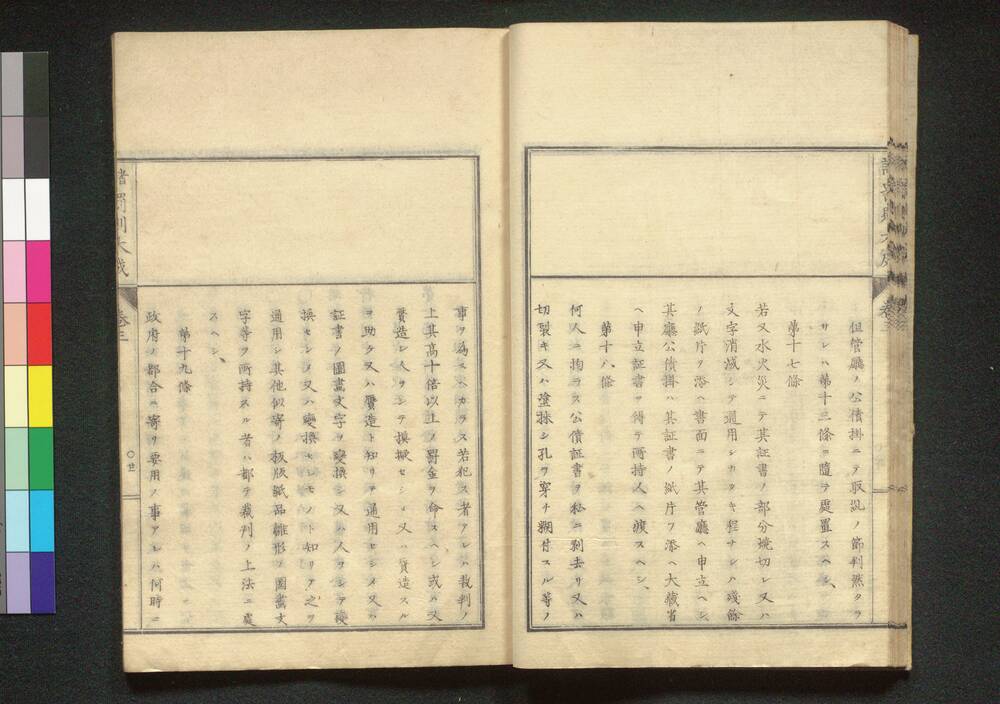 但管廳ノ公債掛ニテ取糺ノ節判然タラ
サレハ第十三條ニ隨テ處置スヘシ、
第十七條
若又水火災ニテ其証書ノ部分燒切レ又ハ
文字消滅シテ通用シカタキ程ナレハ殘餘
ノ紙片ヲ添ヘ書面ニテ其管廳ヘ申立ヘシ
其廳公債掛ハ其証書ノ紙片ヲ添ヘ大藏省
ヘ申立証書ヲ得テ所持人ヘ渡スヘシ、
第十八條
何人ニ拘ラス公債証書ヲ私ニ剝去リ又ハ
切裂キ又ハ塗抹シ孔ヲ穿チ糊付スル等ノ
事ヲ為スヘカラス若犯ス者アレハ裁判ノ
上其高十倍以上ノ罸金ヲ命スヘシ或ハ又
贋造シ人ヲシテ摸擬セシメ又ハ贋造スル
ヲ助ケ又ハ贋造ト知リテ通用セシメ又ハ
証書ノ圖畫文字ヲ變換シ又ハ人ヲシテ變
換セシメ又ハ變換セシモノト知リテ之ヲ
通用シ其他似寄ノ板版紙品雛形ノ圖畫文
字等ヲ所持スル者ハ都テ裁判ノ上法ニ處
スヘシ、
第十九條
政府ノ都合ニ寄リ要用ノ事アレハ何時ニ
諸罰則大成
卷三
〇廿